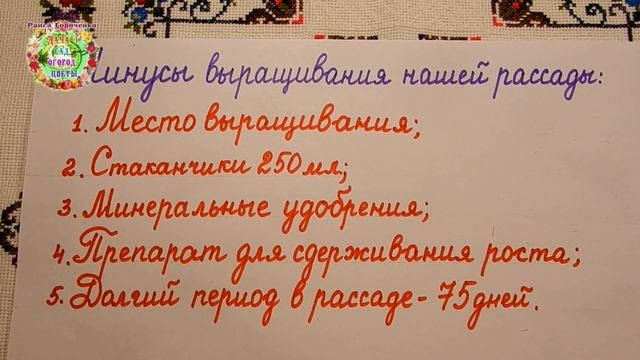 Раиса Горяченко
ДАЧА
САД
ОГОРОД
ЦВЕТЫ
Минусы выращивания нашей рассады:
1. Место выращивания;
2. Стаканчики 250 мл;
3. Минеральные удобрения;
4. Препарат для сдерживания роста;
5. Долгий период в рассаде - 75 дней.